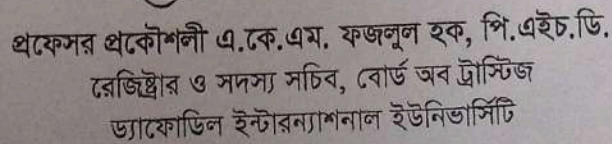 প্রফেসর প্রকৌশলী এ.কে.এম. ফজলুল হক, পি.এইচ.ডি.
রেজিস্ট্রার ও সদস্য সচিব, বোর্ড অব ট্রাস্টিজ
ড্যাফোডিল ইন্টারন্যাশনাল ইউনিভার্সিটি